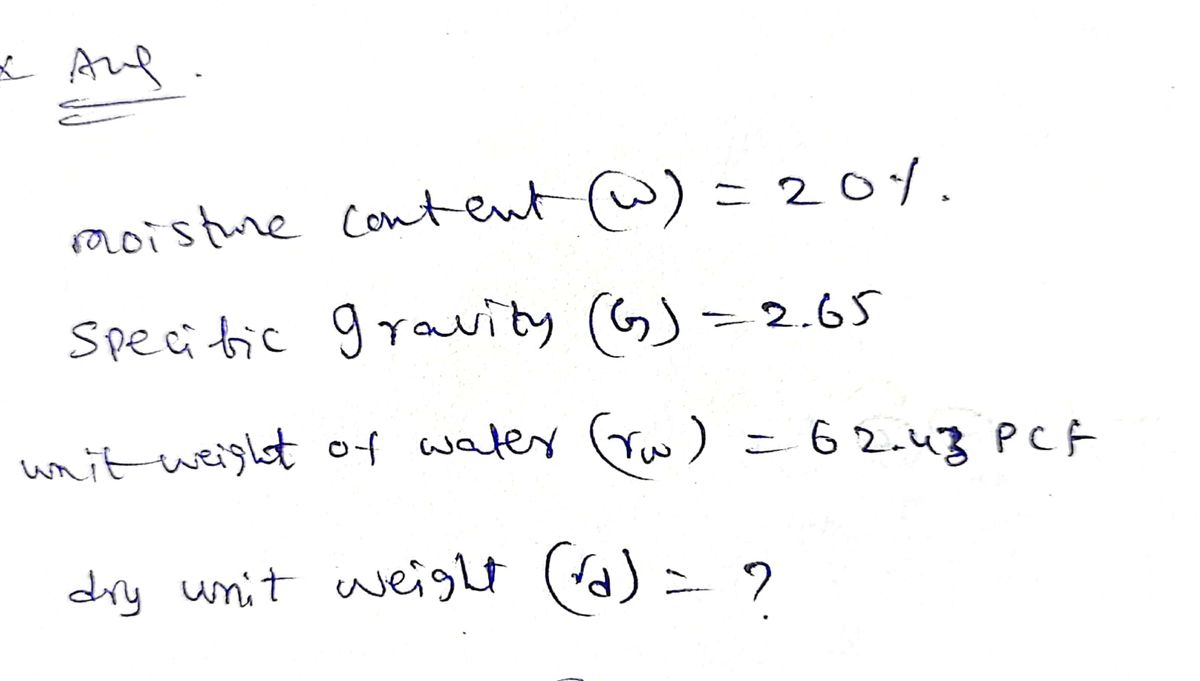 Ans.
moisture content (w) = 20%.
Specific gravity (G) = 2.65
unit weight of water (rw) = 62.43 PCF
dry unit weight (rd) = ?